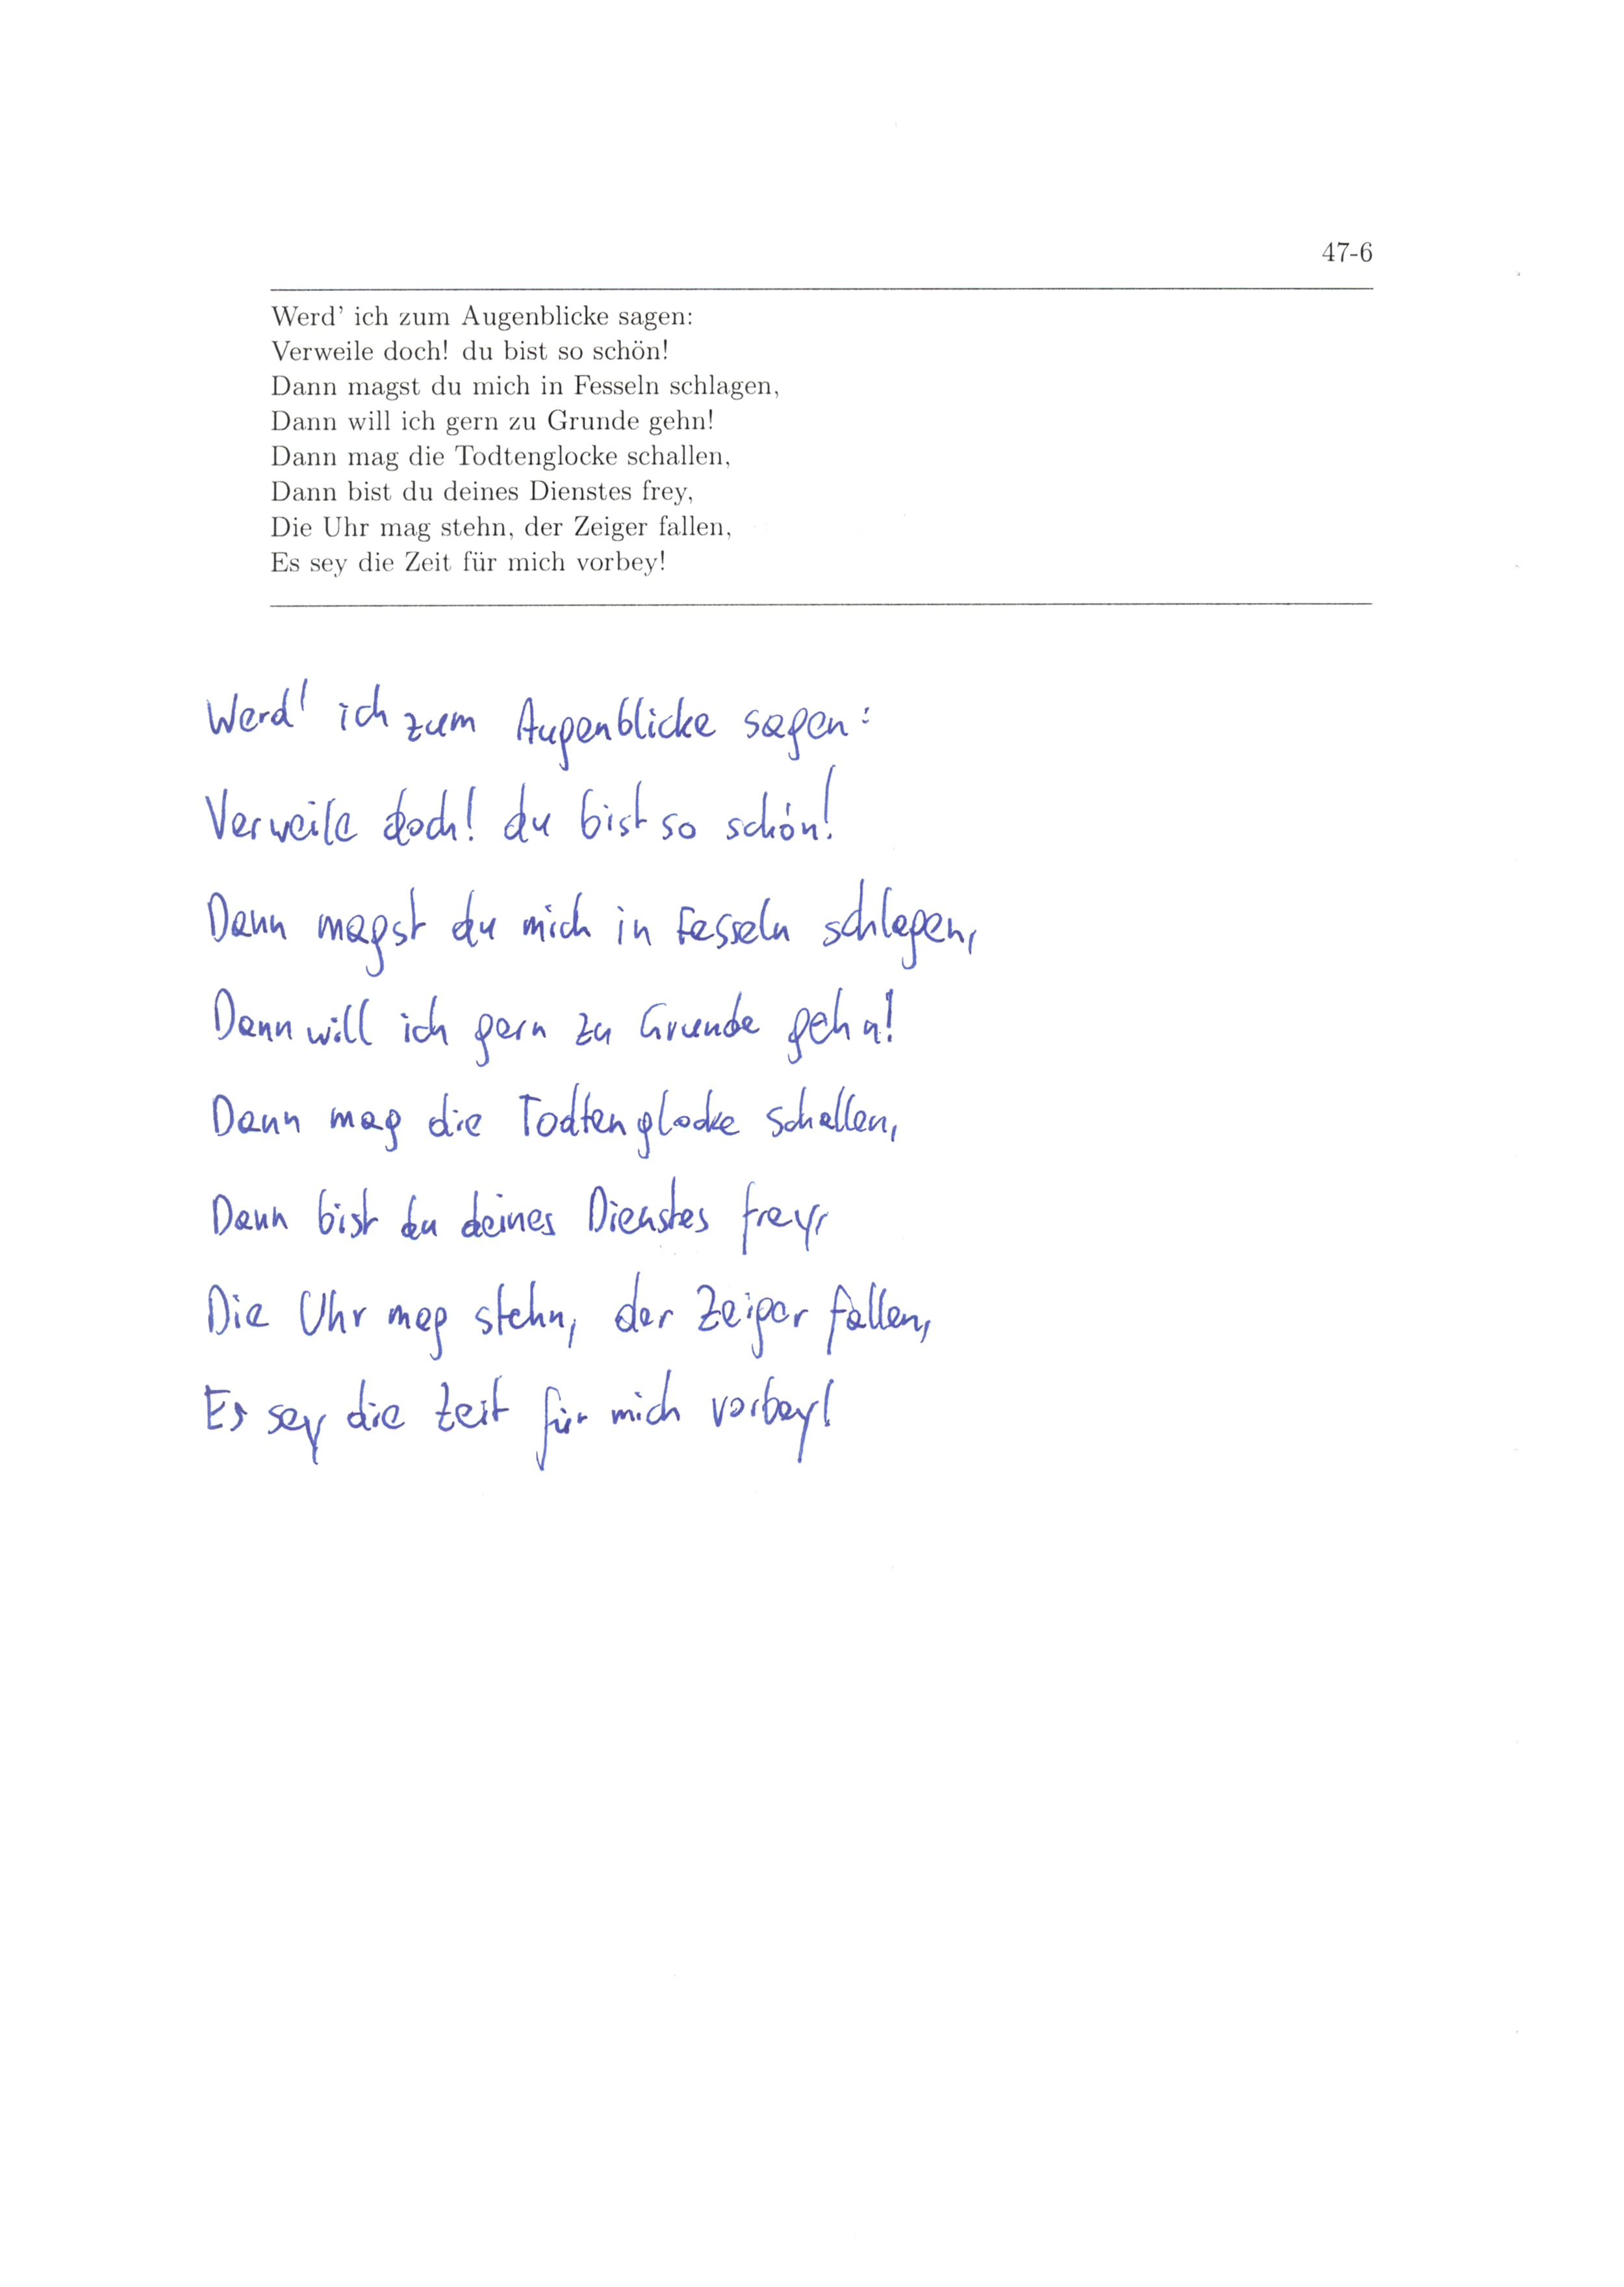 47-6
Werd' ich zum Augenblicke sagen:
Verweile doch! du bist so schön!
Dann magst du mich in Fesseln schlagen,
Dann will ich gern zu Grunde gehn!
Dann mag die Todtenglocke schallen,
Dann bist du deines Dienstes frey,
Die Uhr mag stehn, der Zeiger fallen,
Es sey die Zeit für mich vorbey!
Werd' ich zum Augenblicke sagen:
Verweile doch! du bist so schön!
Dann magst du mich in Fesseln schlagen,
Dann will ich gern zu Grunde gehn!
Dann mag die Todtenglocke schallen,
Dann bist du deines Dienstes frey,
Die Uhr mag stehn, der Zeiger fallen,
Es sey die Zeit für mich vorbey!